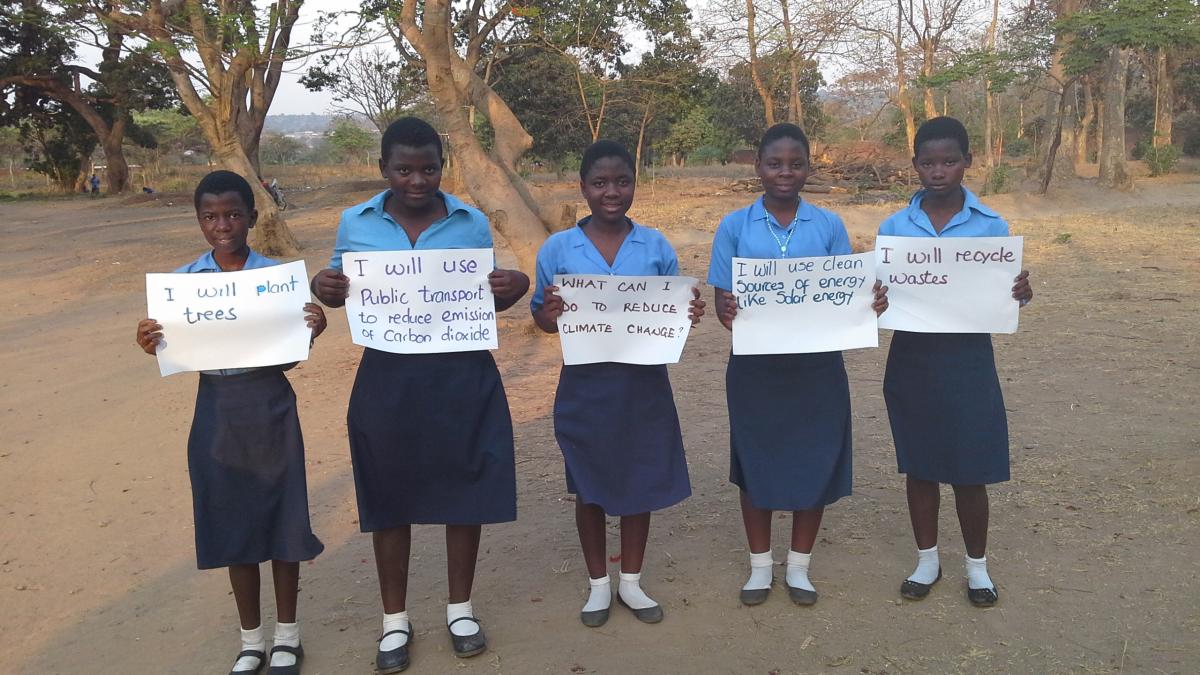 I will plant
trees
I will use
Public transport
to reduce emission
of Carbon dioxide
WHAT CAN I
DO TO REDUCE
CLIMATE CHANGE?
I will use clean
Sources of energy
like Solar energy
I will recycle
wastes